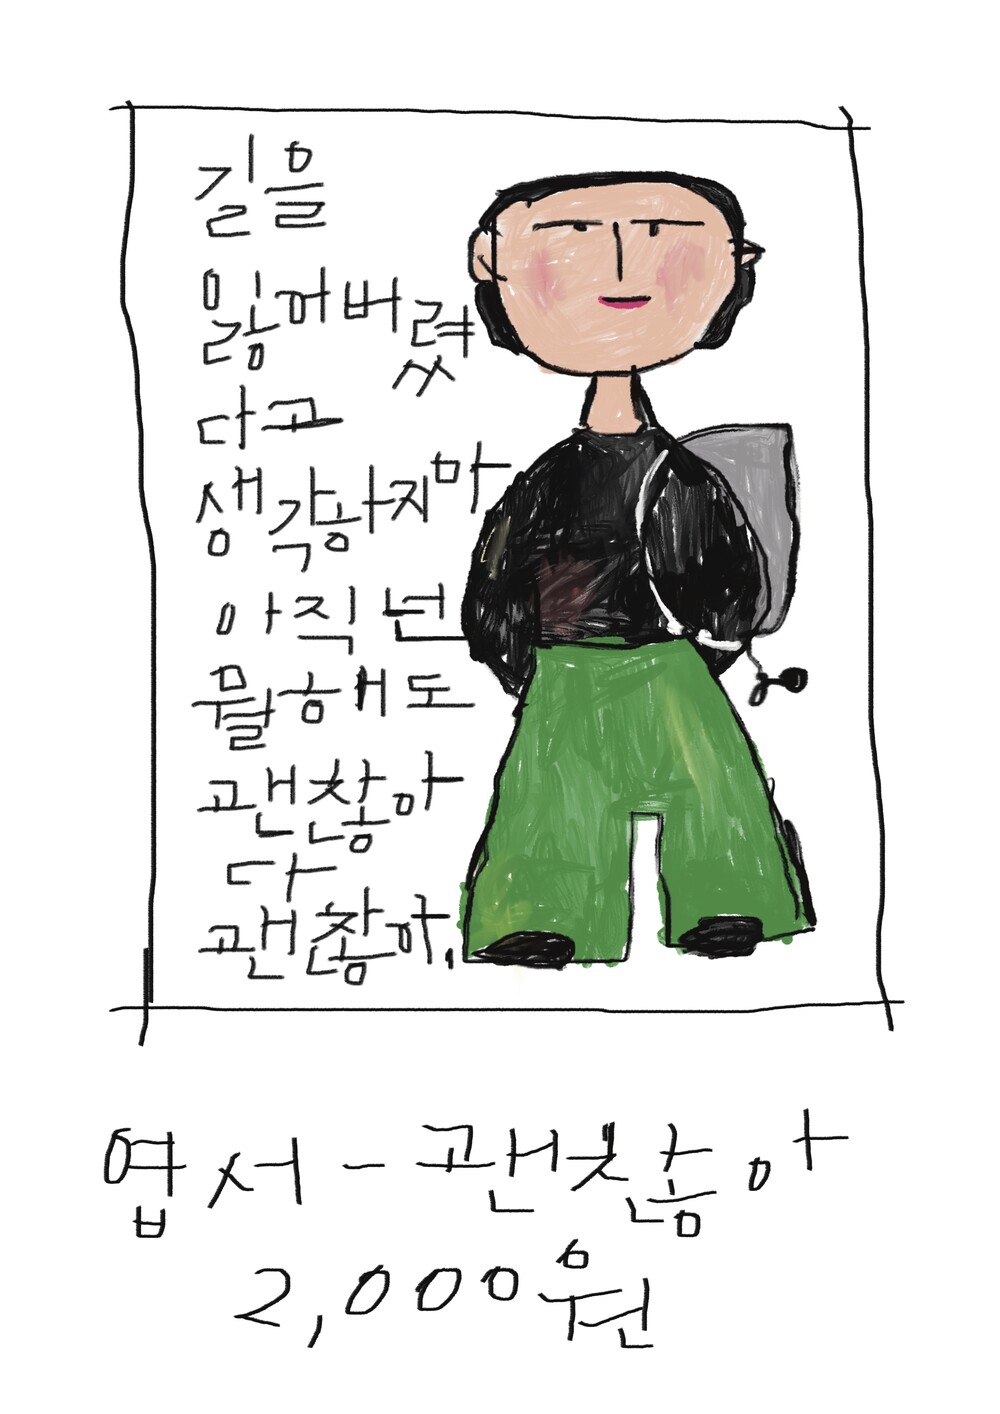 길을
잃어버렸
다고
생각하지마
아직 넌
뭘해도
괜찮아
다
괜찮아.
엽서 - 괜찮아
2,000원